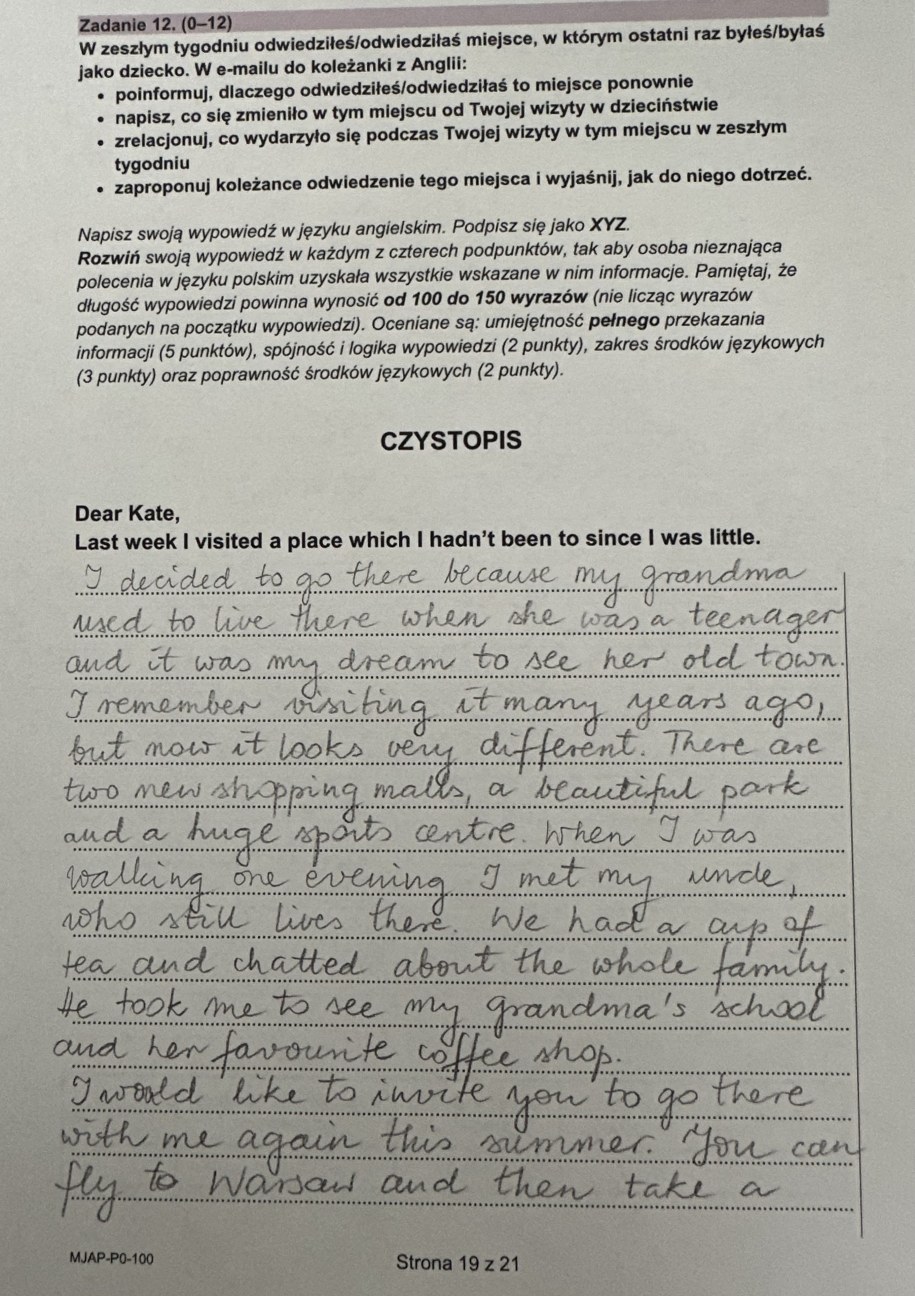 Zadanie 12. (0–12)
W zeszłym tygodniu odwiedziłeś/odwiedziłaś miejsce, w którym ostatni raz byłeś/byłaś
jako dziecko. W e-mailu do koleżanki z Anglii:
• poinformuj, dlaczego odwiedziłeś/odwiedziłaś to miejsce ponownie
• napisz, co się zmieniło w tym miejscu od Twojej wizyty w dzieciństwie
• zrelacjonuj, co wydarzyło się podczas Twojej wizyty w tym miejscu w zeszłym
tygodniu
• zaproponuj koleżance odwiedzenie tego miejsca i wyjaśnij, jak do niego dotrzeć.
Napisz swoją wypowiedź w języku angielskim. Podpisz się jako XYZ.
Rozwiń swoją wypowiedź w każdym z czterech podpunktów, tak aby osoba nieznająca
polecenia w języku polskim uzyskała wszystkie wskazane w nim informacje. Pamiętaj, że
długość wypowiedzi powinna wynosić od 100 do 150 wyrazów (nie licząc wyrazów
podanych na początku wypowiedzi). Oceniane są: umiejętność pełnego przekazania
informacji (5 punktów), spójność i logika wypowiedzi (2 punkty), zakres środków językowych
(3 punkty) oraz poprawność środków językowych (2 punkty).
CZYSTOPIS
Dear Kate,
Last week I visited a place which I hadn't been to since I was little.
I decided to go there because my grandma
used to live there when she was a teenager
and it was my dream to see her old town.
I remember visiting it many years ago,
but now it looks very different. There are
two new shopping malls, a beautiful park
and a huge sports centre. When I was
walking one evening I met my uncle,
who still lives there. We had a cup of
tea and chatted about the whole family.
He took me to see my grandma's school
and her favourite coffee shop.
I would like to invite you to go there
with me again this summer. You can
fly to Warsaw and then take a
MJAP-P0-100
Strona 19 z 21